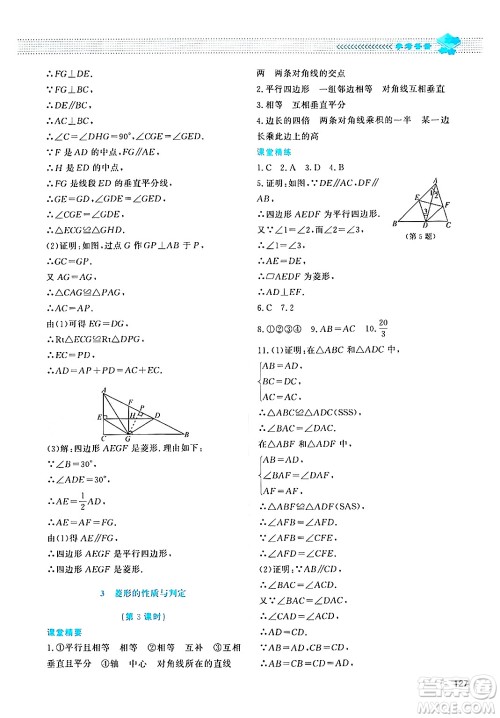 参考答案
∴FG⊥DE.
∵FG⊥BC,
∴DE∥BC.
∴AC⊥BC.
∴∠C=∠DHG=90°,∠CGE=∠GED.
∵F是AD的中点,FG∥AE,
∴H是ED的中点.
∴FG是线段ED的垂直平分线.
∴GE=GD,∠GDE=∠GED.
∴∠CGE=∠GDE.
∴△ECG≌△GHD.
(2)证明:如图,过点G作GP⊥AB于P,
∴GC=GP.
又AG=AG,
∴△CAG≌△PAG.
∴AC=AP.
由(1)可得EG=DG,
∴Rt△ECG≌Rt△GPD.
∴EC=PD.
∴AD=AP+PD=AC+EC.
A
F
P
E
H
D
C
G
B
(3)解:四边形AEGF是菱形.理由如下:
∵∠B=30°,
∴∠ADE=30°.
∴AE=1/2AD.
∴AE=AF=FG.
由(1)得AE∥FG,
∴四边形AEGF是平行四边形.
∴四边形AEGF是菱形.
3 菱形的性质与判定
(第3课时)
课堂精要
1.①平行且相等 相等 ②相等 互补 ③互相
垂直且平分 ④轴 中心 对角线所在的直线
两 两条对角线的交点
2.平行四边形 一组邻边相等 对角线互相垂直
四边相等 对角线互相垂直平分
4.边长的四倍 两条对角线乘积的一半 某一边
长乘此边上的高
课堂精练
1.C 2.A 3.D 4.B
5.证明:∵DE∥AC,DF∥
AB,
∴四边形AEDF为平行四边形.
∴∠2=∠3.
又∵∠1=∠2,
∴∠1=∠3.
∴AE=DE.
∴▱AEDF为菱形.
∴AD⊥EF.
A
E
F
B
D
C
1
2
3
(第5题)
6.C 7.2
8.①②③④ 9.AB=AC 10.20/3
11.(1)证明:在△ABC和△ADC中,
AB=AD,
BC=DC,
AC=AC,
∴△ABC≌△ADC(SSS).
∴∠BAC=∠DAC.
在△ABF和△ADF中,
AB=AD,
∠BAF=∠DAF,
AF=AF,
∴△ABF≌△ADF(SAS).
∴∠AFB=∠AFD.
∵∠AFB=∠CFE,
∴∠AFD=∠CFE.
(2)证明:∵AB∥CD,
∴∠BAC=∠ACD.
又∵∠BAC=∠DAC,
∴∠DAC=∠ACD.
∴AD=CD.
∵AB=AD,CB=CD,
∴AB=CB=CD=AD.
∴四边形ABCD是菱形.
127